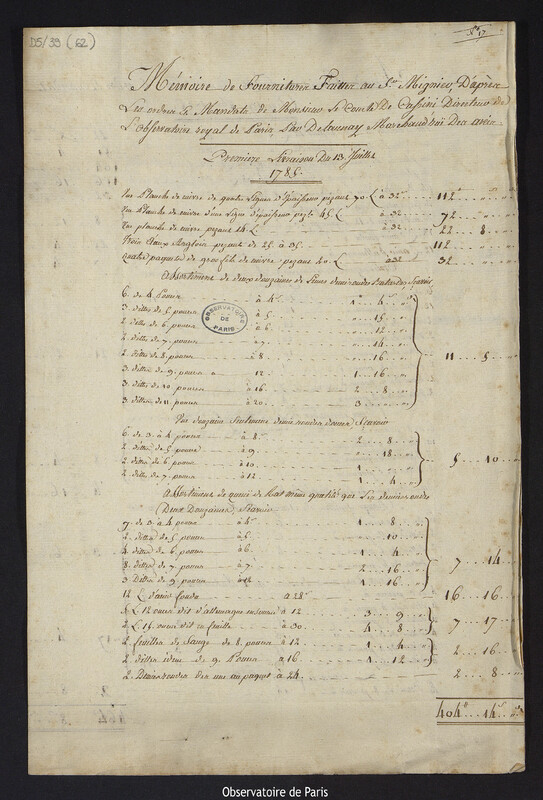 D5/39 (62)
Mémoire de Fournitures Faittes au Sr. Mignier D'après
Les ordres & Mandats de Monsieur Le Comte De Cassini Directeur de
L'observatoire royal de Paris, Par Delaunay Marchand
Premiere Livraison Du 13 Juillet
1785.
Une Planche de cuivre de quatre Lignes d'épaisseur pezant 70 L à 32s 112# " "
Une Planche de cuivre d'une Ligne d'épaisseur pezte 45 L à 32 72 " "
Une planche de cuivre pezant 14 L à 32 22 8 "
Trois Anglois pezant 25 à 35 112
quatre paquets de gros fil de cuivre pezant 20 L à 32 32 " "
Assortiment de deux douzaines de Limes demi rondes Batardes, Sçavoir
6. de 4 Pouces à 4s 1# 4s "
3. dittes de 5. pouces à 5 15
2. dittes de 6. pouces à 6 12
2. dittes de 7. pouces 7 14
2. dittes de 8. pouces 8 16
3. dittes de 9. pouces 12 1 16
3. dittes de 10. pouces à 16 2 8
3. dittes de 11. pouces à 20 3
11 5
Une douzaine Seulement demie rondes douces Sçavoir
6. de 3. à 4 pouces à 8s 2 8
2. dittes de 5. pouces à 9 18
2. dittes de 6. pouces à 10 1
2. dittes de 7. pouces à 12 1 4
5 10
Assortiment de même quantité que Les demi rondes
(Deux Douzaines, Sçavoir
7. de 3. à 4 pouces à 4s 1 8
2. dittes de 5. pouces à 5 10
4. dittes de 6. pouces à 6 1 4
8. dittes de 7. pouces à 7 2 16
3. Dittes de 9. pouces à 12 1 16
7 14
12 L d'acier fondu à 28s 16 16
5 L 12 onces dit d'allemagne à 12 3 9
2 L 15. onces dit en feuille à 30 4 8
7 17
2. feuilles de Sauge de 8. pouces à 12 1 4
2. dittes idem de 9. Pouces à 16 1 12
2 16
2. Demi rondes une au paquet à 24 2 8
404# 14s
OBSERVATOIRE DE PARIS
Observatoire de Paris